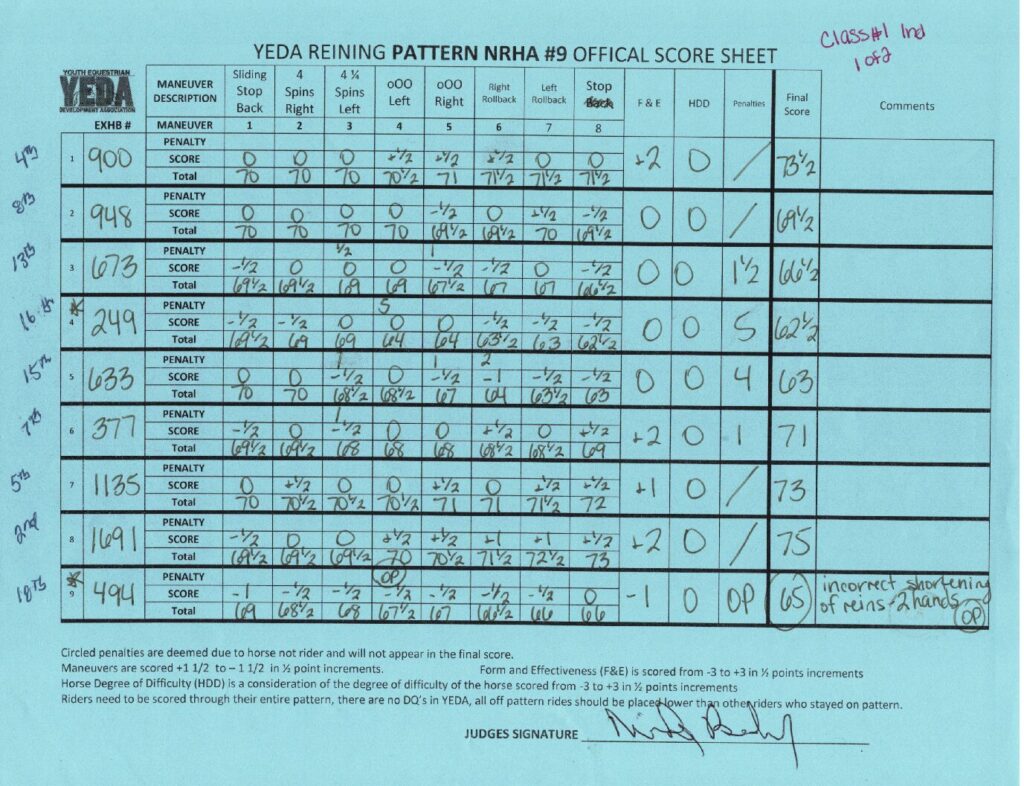 Class#1 Ind
1 of 2
YEDA REINING PATTERN NRHA #9 OFFICAL SCORE SHEET
YOUTH EQUESTRIAN
YEDA
DEVELOPMENT ASSOCIATION
MANEUVER DESCRIPTION Sliding Stop Back 4 Spins Right 4 ¼ Spins Left oOO Left oOO Right Right Rollback Left Rollback Stop Back F & E HDD Penalties Final Score Comments
EXHB # MANEUVER 1 2 3 4 5 6 7 8
4th 1 900
PENALTY
SCORE 0 0 0 +½ +½ +½ 0 0 +2 0 / 73½
Total 70 70 70 70½ 71 71½ 71½ 71½
8th 2 948
PENALTY
SCORE 0 0 0 0 -½ 0 +½ -½ 0 0 / 69½
Total 70 70 70 70 69½ 69½ 70 69½
13th 3 673
PENALTY ½ 1
SCORE -½ 0 0 0 -½ -½ 0 -½ 0 0 1½ 66½
Total 69½ 69½ 69 69 67½ 67 67 66½
16th * 4 249
PENALTY 5
SCORE -½ -½ 0 0 0 -½ -½ -½ 0 0 5 62½
Total 69½ 69 69 64 64 63½ 63 62½
15th 5 633
PENALTY 1 1 2
SCORE 0 0 -½ 0 -½ -1 -½ -½ 0 0 4 63
Total 70 70 68½ 68½ 67 64 63½ 63
7th 6 377
PENALTY 1
SCORE -½ 0 -½ 0 0 +½ 0 +½ +2 0 1 71
Total 69½ 69½ 68 68 68 68½ 68½ 69
5th 7 1135
PENALTY
SCORE 0 +½ 0 0 +½ 0 +½ +½ +1 0 / 73
Total 70 70½ 70½ 70½ 71 71 71½ 72
2nd 8 1691
PENALTY
SCORE -½ 0 0 +½ +½ +1 +1 +½ +2 0 / 75
Total 69½ 69½ 69½ 70 70½ 71½ 72½ 73
18th * 9 494
PENALTY OP
SCORE -1 -½ -½ -½ -½ -½ -½ 0 -1 0 OP 65 incorrect shortening of reins - 2 hands OP
Total 69 68½ 68 67½ 67 66½ 66 66
Circled penalties are deemed due to horse not rider and will not appear in the final score.
Maneuvers are scored +1 1/2 to – 1 1/2 in ½ point increments. Form and Effectiveness (F&E) is scored from -3 to +3 in ½ points increments
Horse Degree of Difficulty (HDD) is a consideration of the degree of difficulty of the horse scored from -3 to +3 in ½ points increments
Riders need to be scored through their entire pattern, there are no DQ's in YEDA, all off pattern rides should be placed lower than other riders who stayed on pattern.
JUDGES SIGNATURE